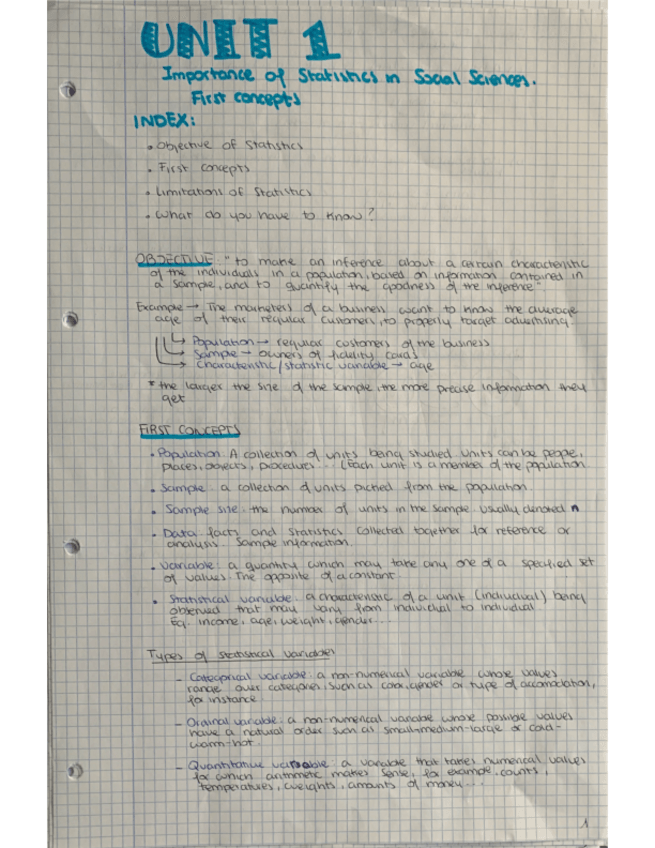 UNIT 1
Importance of Statistics in Social Sciences.
First concepts
INDEX:
• Objective of Statistics
• First concepts
• Limitations of Statistics
• What do you have to know?
OBJECTIVE: "to make an inference about a certain characteristic
of the individuals in a population, based on information contained in
a sample, and to quantify the goodness of the inference"
Example → The marketers of a business want to know the average
age of their regular customers, to properly target advertising.
↳ Population → regular customers of the business
↳ Sample → owners of fidelity cards
↳ Characteristic/statistic variable → age
* the larger the size of the sample, the more precise information they
get
FIRST CONCEPTS
• Population: A collection of units being studied. Units can be people,
places, objects, procedures... (Each unit is a member of the population
• Sample: a collection of units picked from the population.
• Sample size: the number of units in the sample. Usually denoted n
• Data: facts and statistics collected together for reference or
analysis. Sample information.
• Variable: a quantity which may take any one of a specified set
of values. The opposite of a constant.
• Statistical variable: a characteristic of a unit (individual) being
observed that may vary from individual to individual
Eg. income, age, weight, gender...
Types of statistical variables
- Categorical variable: a non-numerical variable whose values
range over categories, such as color, gender or type of accomodation,
for instance.
- Ordinal variable: a non-numerical variable whose possible values
have a natural order such as small-medium-large or cold-
warm-hot.
- Quantitative variable: a variable that takes numerical values
for which arithmetic makes sense, for example, counts,
temperatures, weights, amounts of money...
1